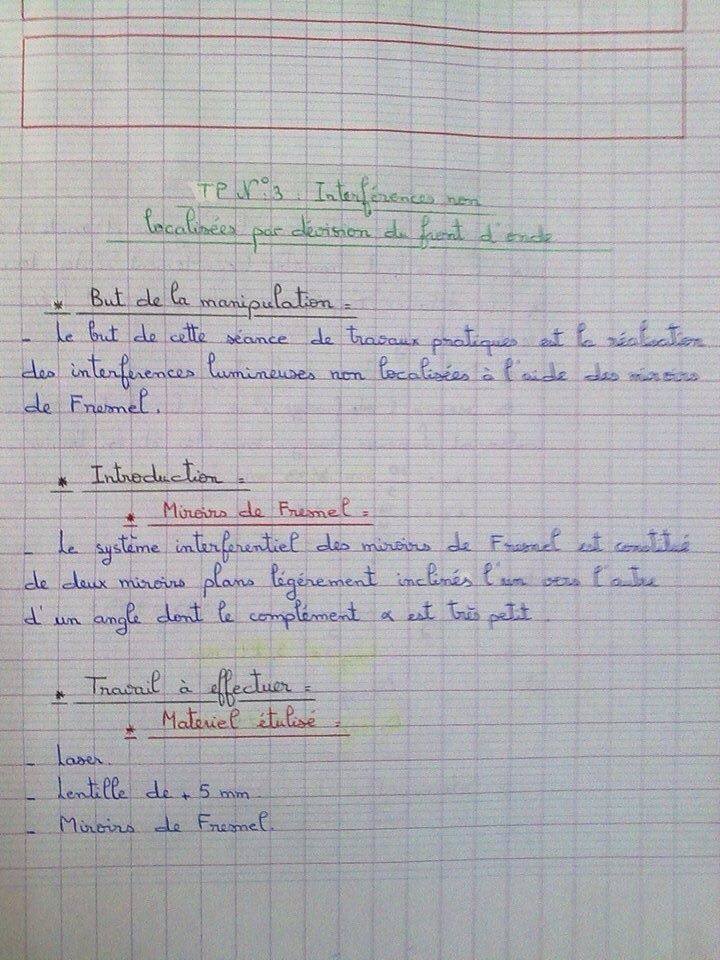 TP N°3 : Interférences non
localisées par décision du front d'onde
* But de la manipulation =
- Le but de cette séance de travaux pratiques est la réalisation
des interferences lumineuses non localisées à l'aide des miroirs
de Fresnel.
* Introduction =
* Miroirs de Fresnel =
- Le système interferentiel des miroirs de Fresnel est constitué
de deux miroirs plans légérement inclinés l'un vers l'autre
d'un angle dont le complément α est très petit.
* Travail à effectuer =
* Materiel étulisé =
- Laser.
- Lentille de + 5 mm.
- Miroirs de Fresnel.